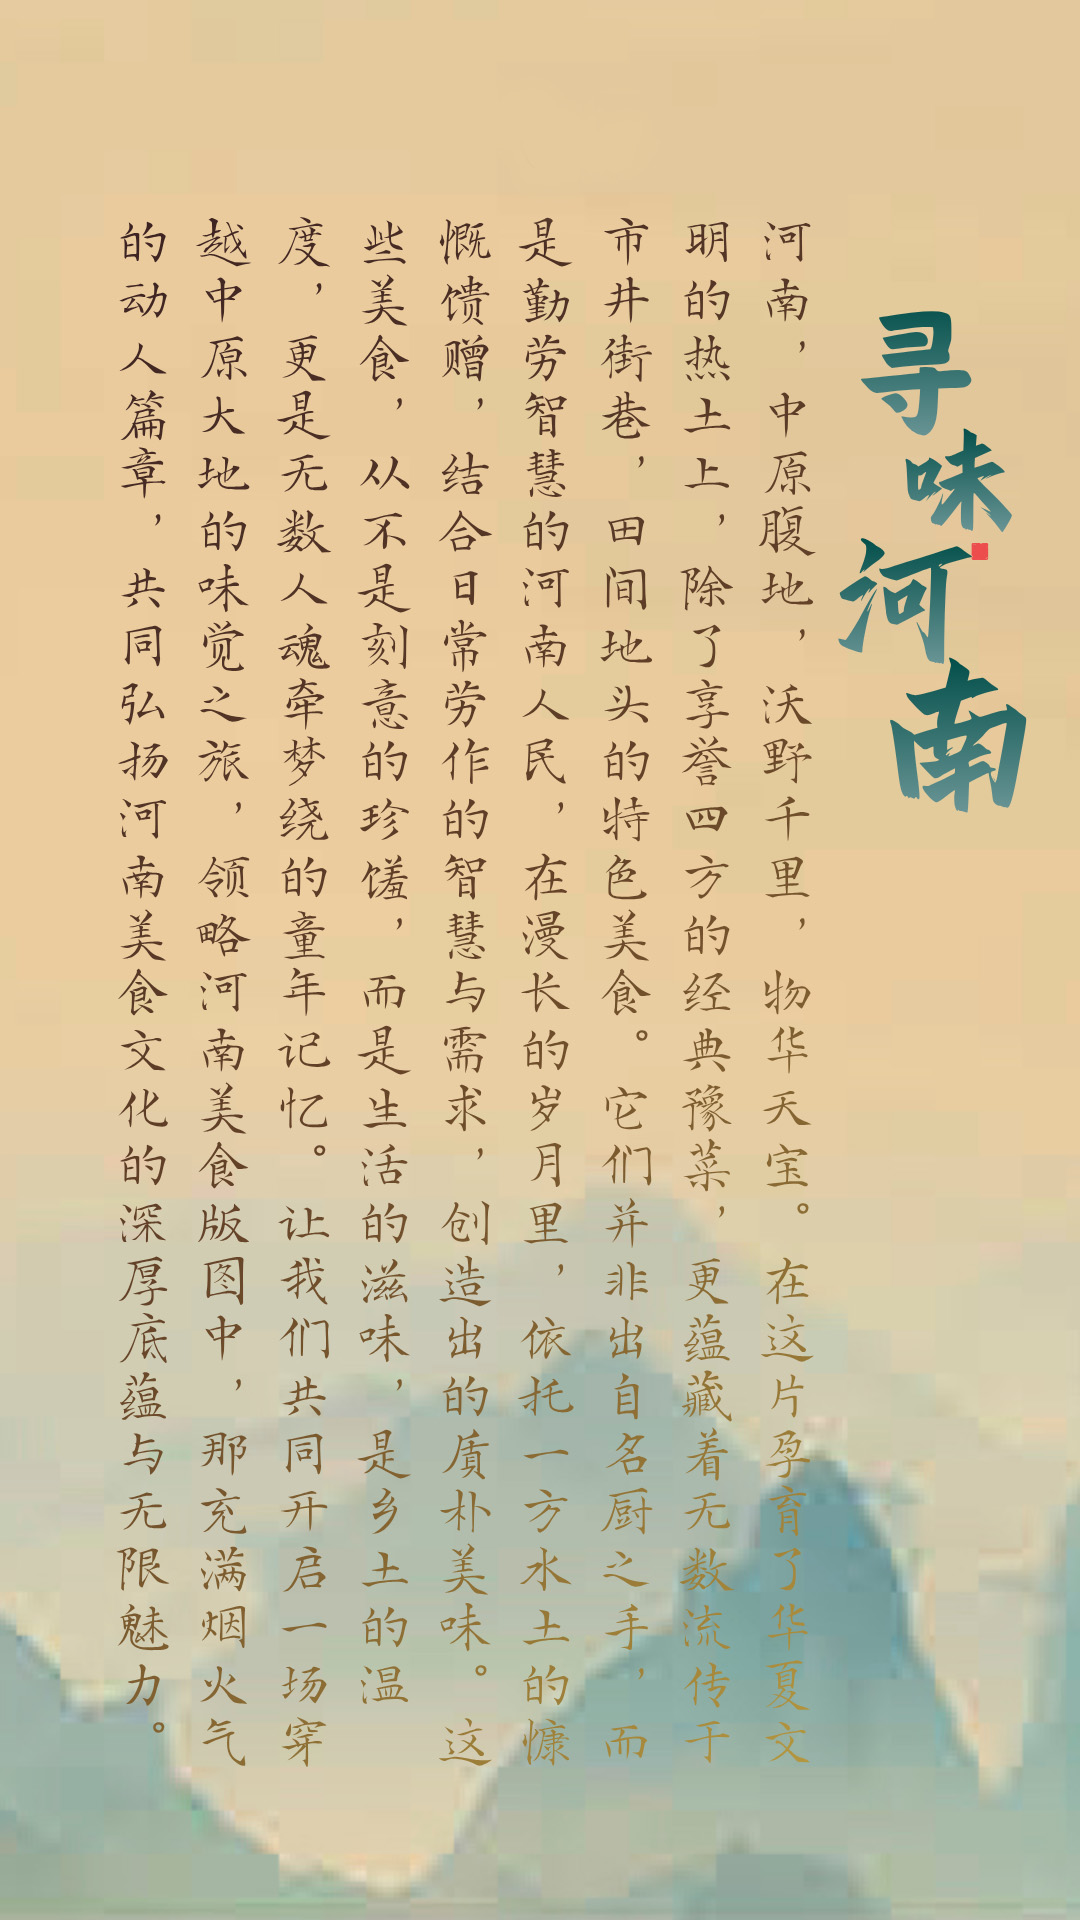 寻味河南
河南，中原腹地，沃野千里，物华天宝。在这片孕育了华夏文
明的热土上，除了享誉四方的经典豫菜，更蕴藏着无数流传于
市井街巷，田间地头的特色美食。它们并非出自名厨之手，而
是勤劳智慧的河南人民，在漫长的岁月里，依托一方水土的慷
慨馈赠，结合日常劳作的智慧与需求，创造出的质朴美味。这
些美食，从不是刻意的珍馐，而是生活的滋味，是乡土的温
度，更是无数人魂牵梦绕的童年记忆。让我们共同开启一场穿
越中原大地的味觉之旅，领略河南美食版图中，那充满烟火气
的动人篇章，共同弘扬河南美食文化的深厚底蕴与无限魅力。